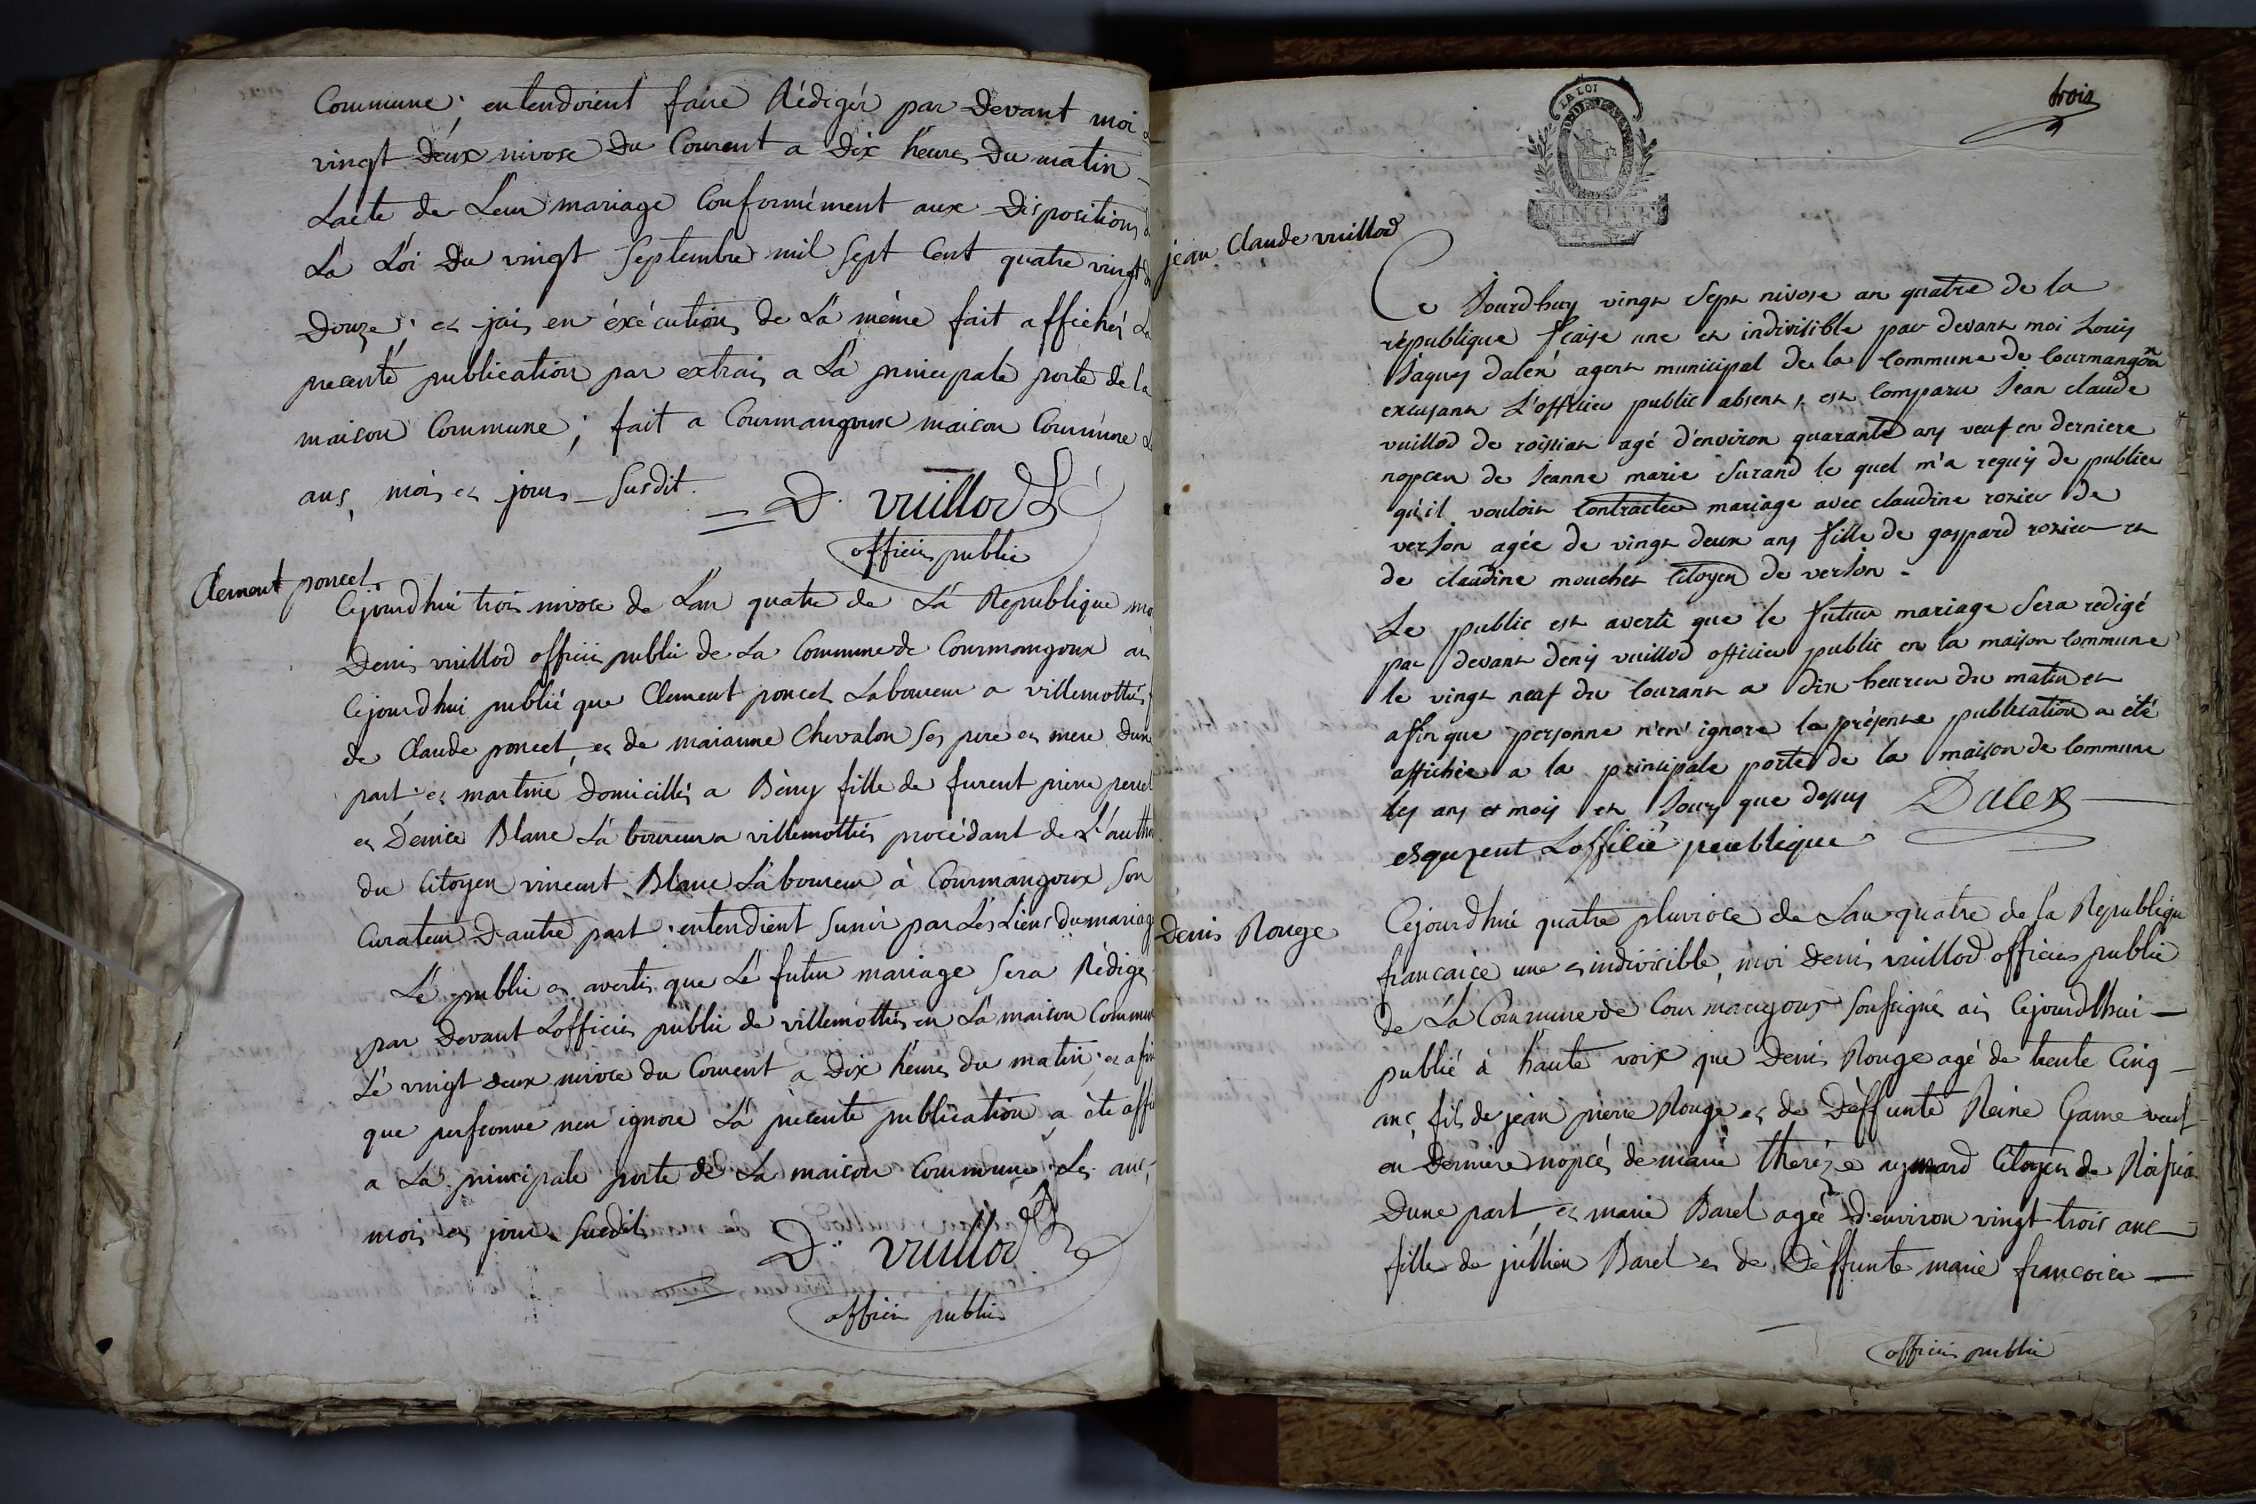 Commune; entendoient faire Rédigér par Devant moi
vingt Deux nivose Du Courent a Dix heures Du matin
Lacte de Leur mariage Conformément aux Dispositions
La Loi Du vingt Septembre mil Sept Cent quatre vingt
Douze; et jais en éxécutions de La même fait affichés
presente publication par extrais a La principale porte de la
maison Commune; fait a Courmangoux maison Commune
ans, mois et jours Susdit.
D. vuillod
officier public
Clement poncet
Cejourdhui trois nivose de Lan quatre de La Republique
Denis vuillod officier public de La Commune de Courmangoux ais
Cejourdhui publié que Clement poncet Laboureur a villemottiés
de Claude poncet et de marianne Chevalon Ses pere et mere Dune
part et martine Domicillés a Bény fille de furent pierre
et Denice Blanc Laboureur a villemottiés procédant de
du Citoyen vincent Blanc Laboureur à Courmangoux Son
Curateur D'autre part entendient Sunir par Les Liens Du mariage
Le public es avertis que Le futur mariage Sera Rédiges
par Devant Lofficier public de villemottiés en La maison Commune
Le vingt deux nivose du Courent a Dix heures du matin; et afin
que personne nen ignore La presente publication a éte
a La principale porte de La maison Commune Les ans
mois et jour Susdits
D. vuillod
officier public
trois
LA LOI
MINUTE
jean Claude vuillod
Ce Jourdhuy vingt Sept nivose an quatre de la
république fcaise une et indivisible par devant moi Louis
Jaques dalex agent municipal de la Commune de Courmangoux
excusant L'officier public absent, est Comparu Jean claude
vuillod de roissiat agé d'environ quarante ans veuf en derniere
nopces de Jeanne marie Surand le quel m'a requis de publier
qu'il vouloit Contracter mariage avec claudine rozier de
verjon agée de vingt deux ans fille de gaspard rozier et
de claudine mouchet Citoyen de verjon.
Le public est averti que le futur mariage Sera redigé
par devant denis vuillod officier public en la maison Commune
le vingt neuf du Courant a dix heures du matin et
afin que personne n'en ignore la présente publication a été
affichée a la principale porte de la maison de Commune
les ans et mois et Jours que dessus Dalex
Denis Rouge
Cejourdhui quatre pluviose de Lan quatre de la Republique
francaice une et indivicible, moi Denis vuillod officier public
de La Commune de Courmangoux Soussigné ais Cejourdhui
publié à haute voix que Denis Rouge agé de trente Cinq
anc, fils de jean pierre Rouge et de Deffunte Reine Game veuf
en Derniere nopces de marie therèze aymard Citoyen de
Dune part, et marie Barel agée d'environ vingt trois anc
fille de jullien Barel et de Deffunte marie francoice
officier public